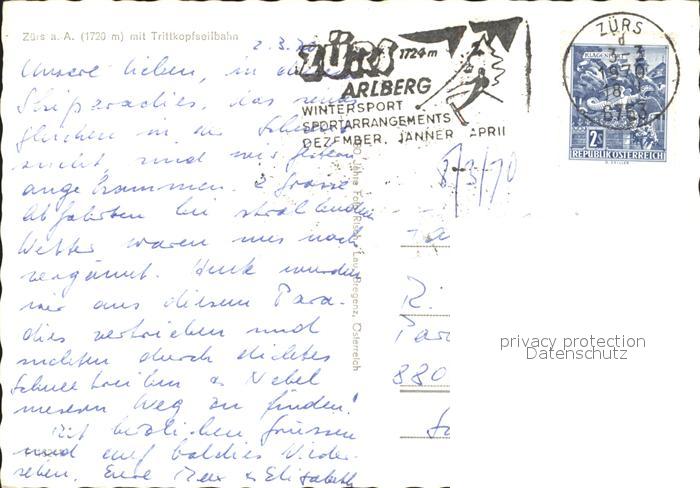 Zürs a. A. (1720 m) mit Trittkopfseilbahn
2.3.70
Unsere lieben, in
Skiparadies, das
gleichen in der
sucht, sind wir gestern
angekommen. 2 grosse
Abfahrten bei strahlendem
Wetter waren uns noch
vergönnt. Heute wurden
wir aus diesem Para-
dies vertrieben und
suchten durch dichtes
Schneetreiben & Nebel
unseren Weg zu finden!
Mit herzlichen Grüssen
und auf baldiges Wieder-
sehen. Eure Max & Elisabeth
ZÜRS 1724 m
ARLBERG
WINTERSPORT
SPORTARRANGEMENTS
DEZEMBER, JÄNNER APRIL
ZÜRS
d
1970
18
6763
KLAGENFURT
2S
REPUBLIK ÖSTERREICH
5/3/70
Foto Risch-Lau, Bregenz, Österreich
R.
Par
880
privacy protection
Datenschutz